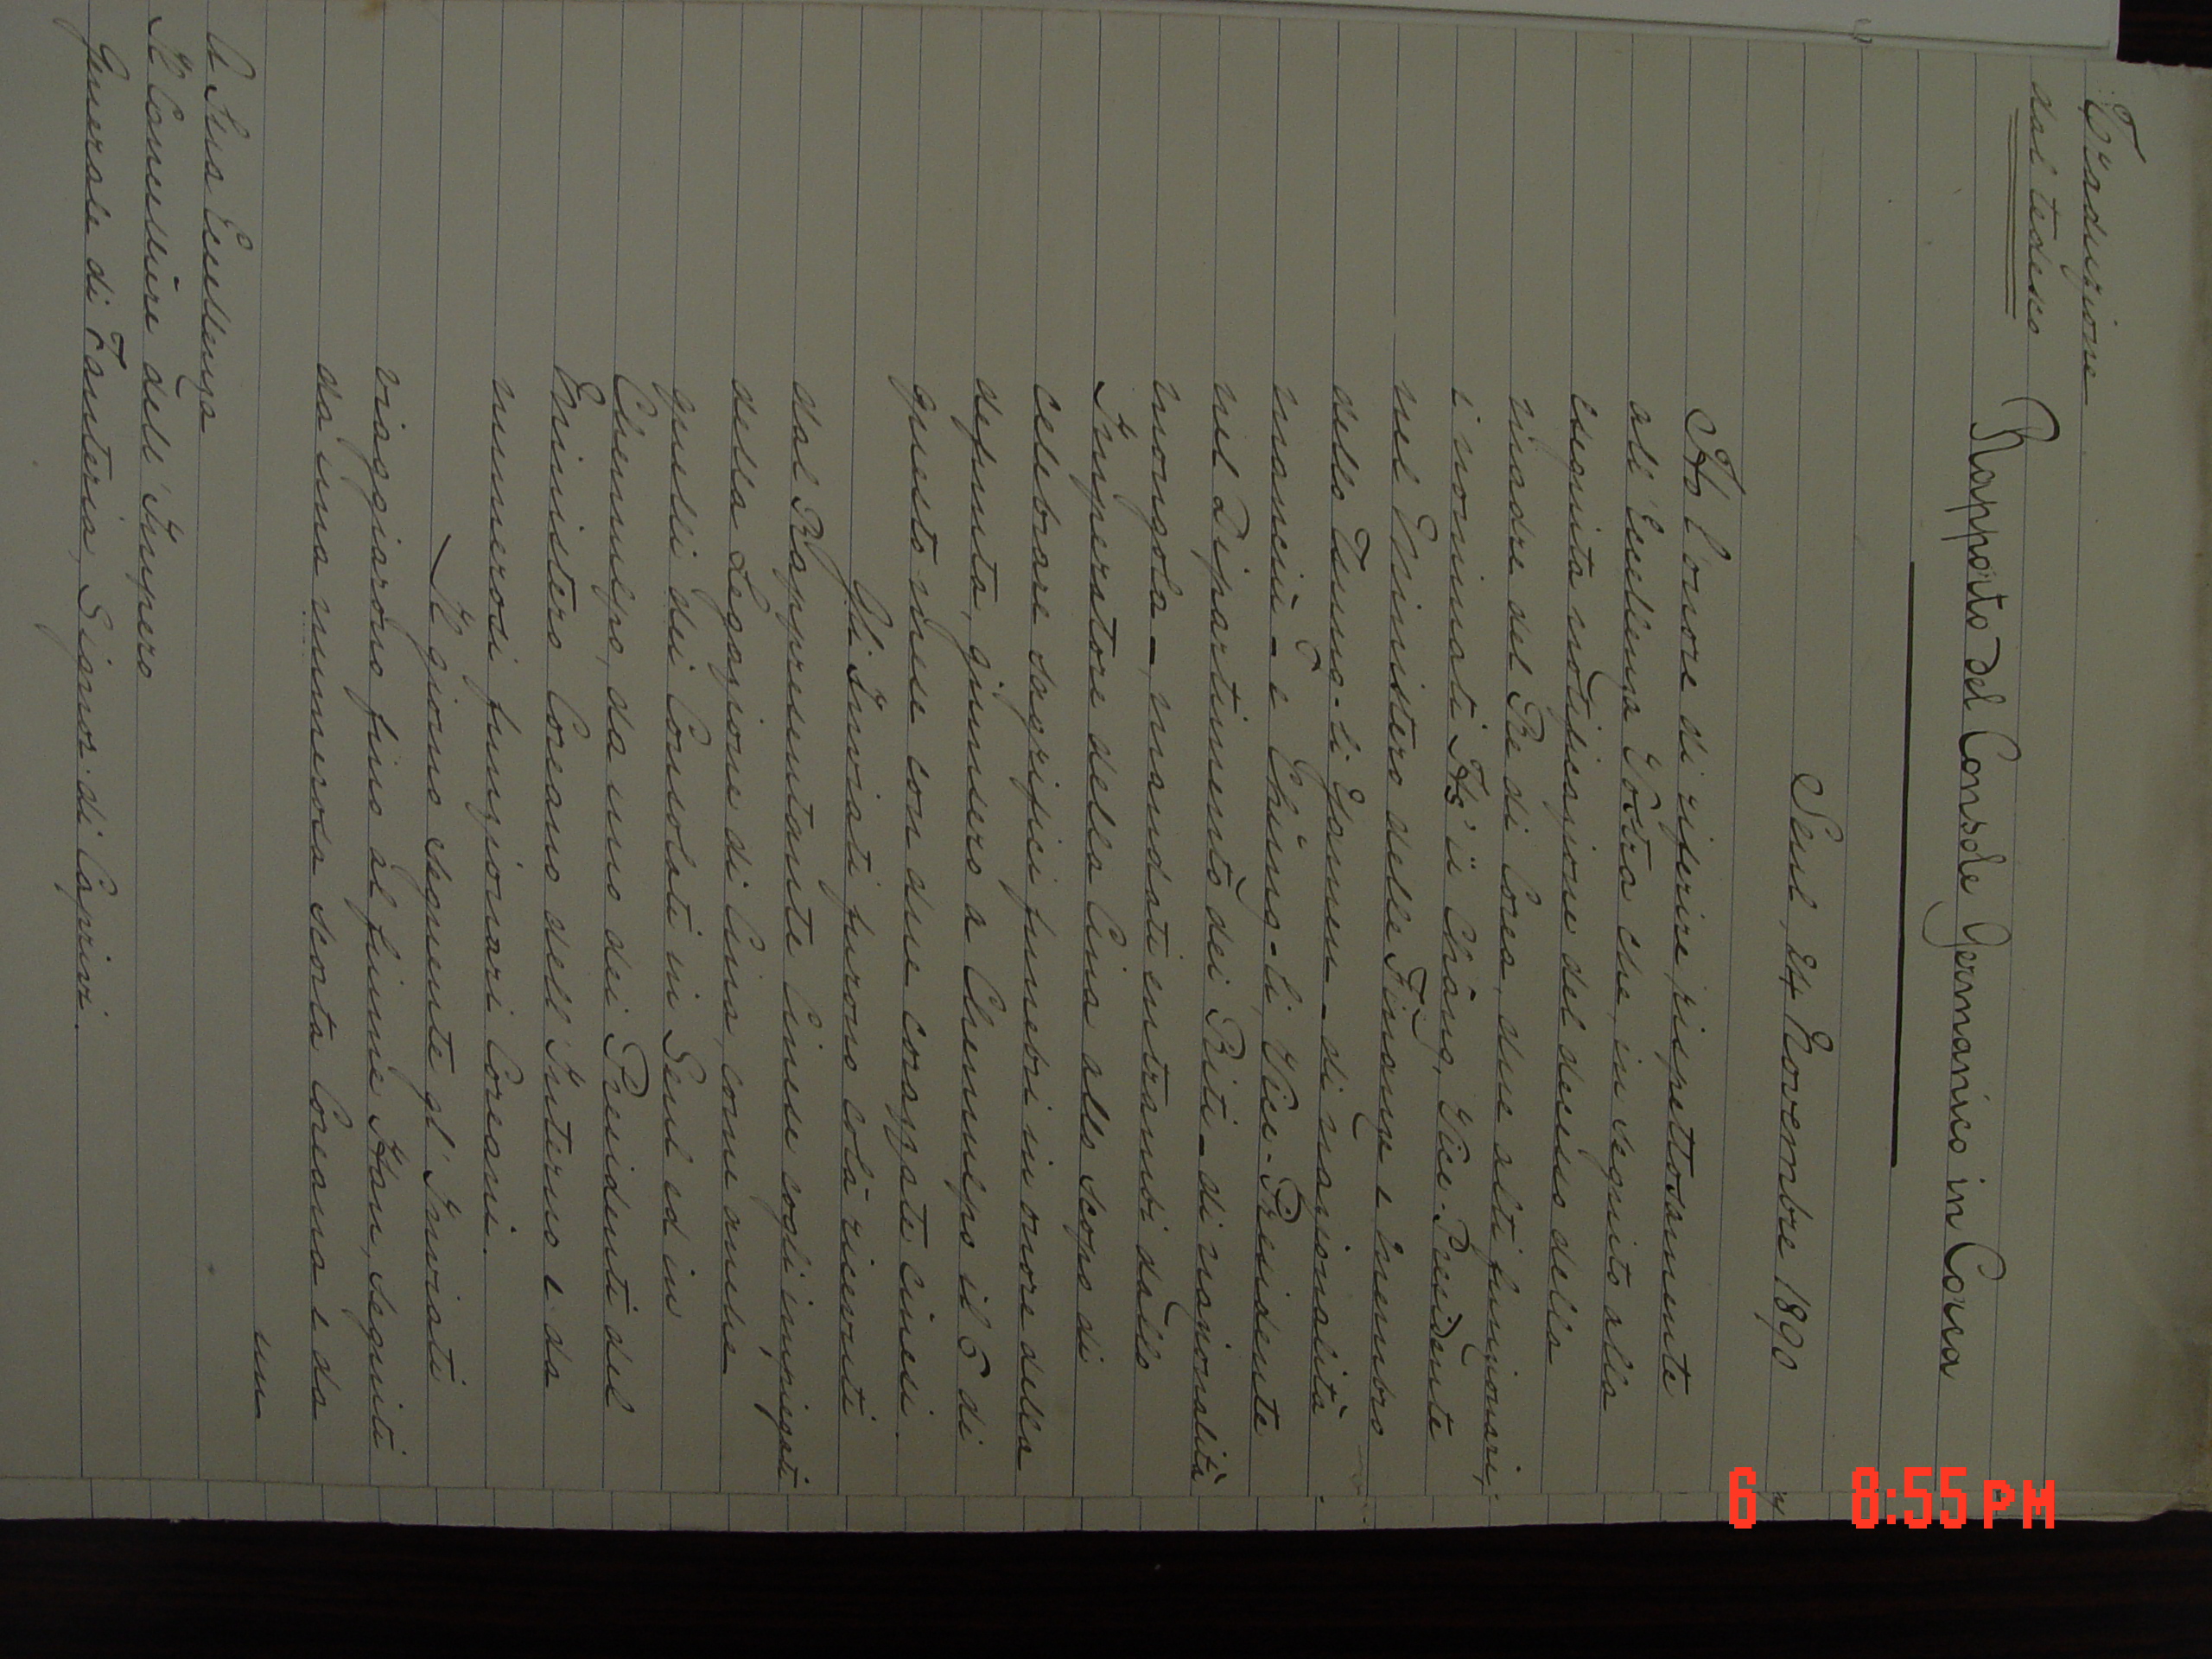 Traduzione
dal tedesco
Rapporto del Console Germanico in Corea
Seul, 24 Novembre 1890
Ho l'onore di riferire rispettosamente
all'Eccellenza Vostra che, in seguito alla
eseguita notificazione del decesso della
madre del Re di Corea, due alti funzionari,
i nominati Hs'ü Chang, Vice-Presidente
nel Ministero delle Finanze e membro
dello Tsung-li Yamen - di nazionalità
manciù - e Ch'ung-li, Vice-Presidente
nel Dipartimento dei Riti - di nazionalità
mongola -, mandati entrambi dallo
Imperatore della Cina allo scopo di
celebrare sagrifici funebri in onore della
defunta, giunsero a Chemulpo il 6 di
questo mese con due corazzate cinesi.
Gli Inviati furono colà ricevuti
dal Rappresentante Cinese cogli impiegati
della Legazione di Cina, come anche
quelli dei Consolati in Seul ed in
Chemulpo, da uno dei Presidenti del
Ministero Coreano dell'Interno e da
numerosi funzionari Coreani.
Il giorno seguente gl'Inviati
viaggiarono fino al fiume Han, seguiti
da una numerosa scorta Coreana e da
un
A Sua Eccellenza
Il Cancelliere dell'Impero
Generale di Fanteria, Signor di Caprivi.
6 8:55 PM